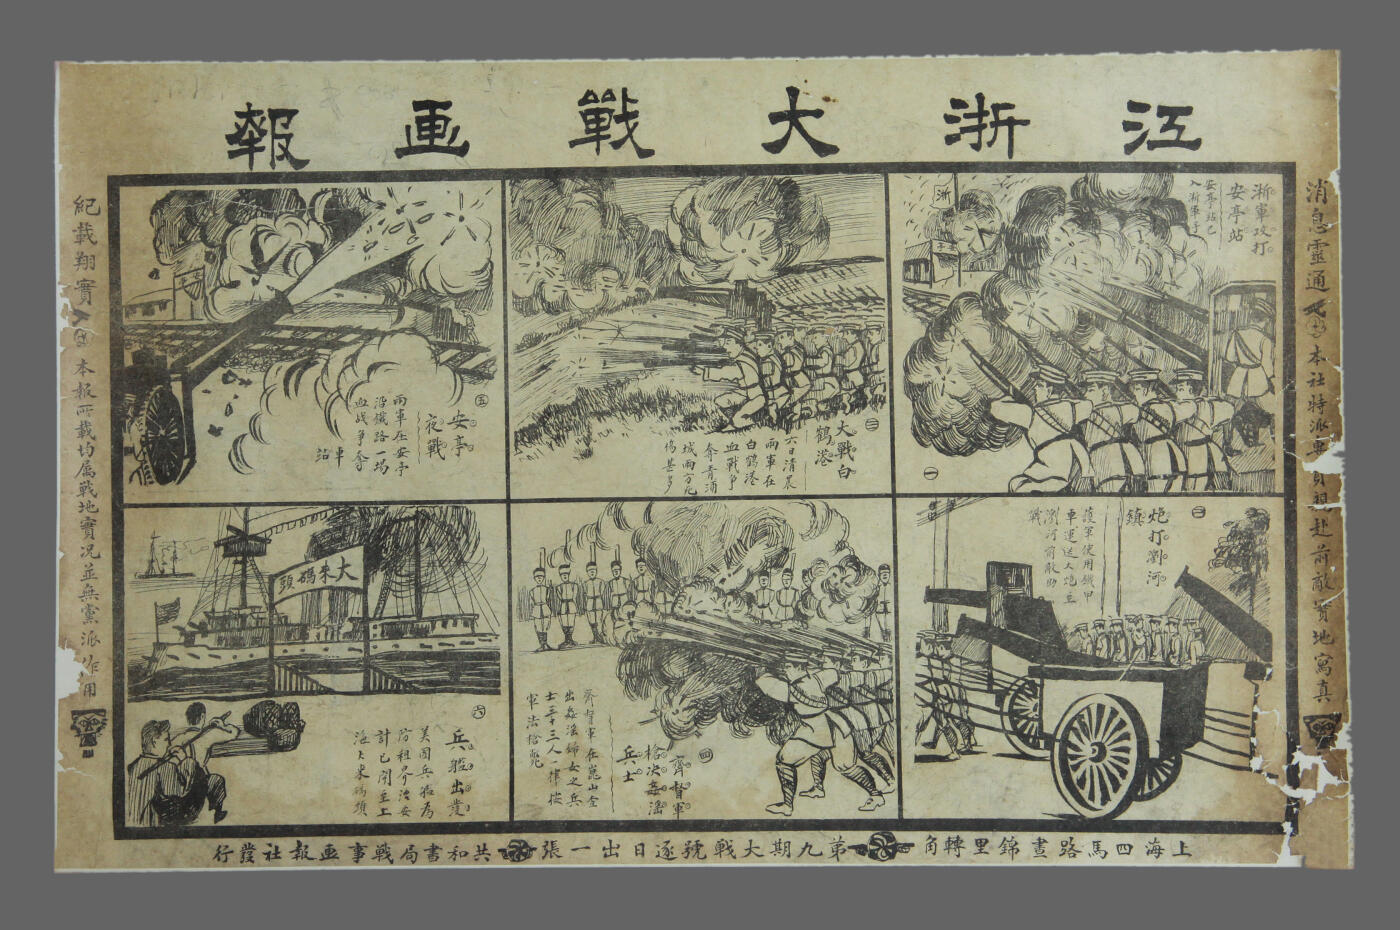 江浙大戰画報
消息靈通
本社特派專員親赴前敵實地寫真
紀載翔實
本報所載均屬戰地實况並無黨派作用
浙軍攻打
安亭站
安亭站已
入浙軍手
浙
一
二
炮打瀏河
鎮
護軍使用鐵甲
車運送大炮至
瀏河前敵助
戰
三
大戰白
鶴港
六日清晨
兩軍在
白鶴港
血戰爭
奪青浦
城兩方死
傷甚多
四
齊督軍
槍決姦淫
兵士
齊督軍在崑山拿
出姦淫婦女之兵
士三十三人一律按
軍法槍斃
五
安亭
夜戰
兩軍在安亭
沿鐵路一場
血战爭奪
車
站
六
兵艦出發
美国兵艦为
防租界治安
計已開至上
海大来碼頭
大來碼頭
上海四馬路晝錦里轉角
第九期大戰號逐日出一張
共和書局戰事画報社發行